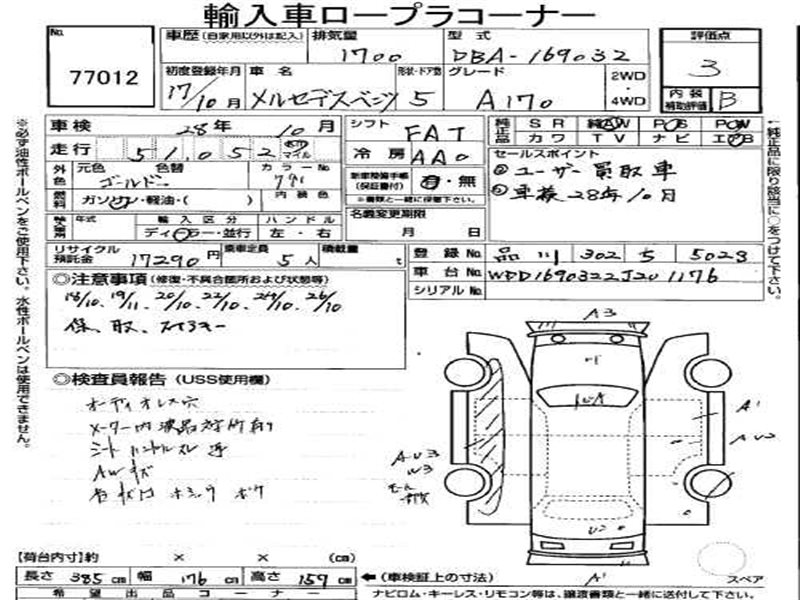 輸入車ロープラコーナー
No. 77012
車歴 (自家用以外は記入) 排気量 1700 型式 DBA-169032 評価点 3
初度登録年月 17/10月 車名 メルセデスベンツ 形状・ドア数 5 グレード A170 2WD・4WD 内装補助評価 B
車検 28年10月 シフト FAT 純正品 SR 純AW PS PW
走行 51,052 km マイル 冷房 AAC カワ TV ナビ エアB
外色 元色 ゴールド 色替 カラーNo. 791 新車整備手帳(保証書付) 有・無 セールスポイント
燃料 ガソリン・軽油・( ) 内装色 ※書類と一緒に保管して下さい。 ①ユーザー買取車
輸入車専用 年式 輸入区分 ディーラー・並行 ハンドル 左・右 名義変更期限 月 日 ②車検28年10月
リサイクル預託金 17290円 乗車定員 5人 積載量 t 登録No. 品川 302 ち 5023
車台No. WDD1690322J201176
シリアルNo.
◎注意事項 (修復・不具合箇所および状態等)
18/10、19/11、20/10、22/10、24/10、26/10
保、取、スペアキー
◎検査員報告 (USS使用欄)
オーディオレス穴
メーター内液晶
シート ハンドルスレ
AWキズ
A3
A1
AU3
W3
モール
A1
【荷台内寸】約 × × (cm)
長さ 385cm 幅 176cm 高さ 159cm ←(車検証上の寸法) スペア
希望出品コーナー ナビロム・キーレス・リモコン等は、譲渡書類と一緒に送付して下さい。
※必ず油性ボールペンをご使用下さい。水性ボールペンは使用できません。
←純正品に限り該当に○をつけて下さい。